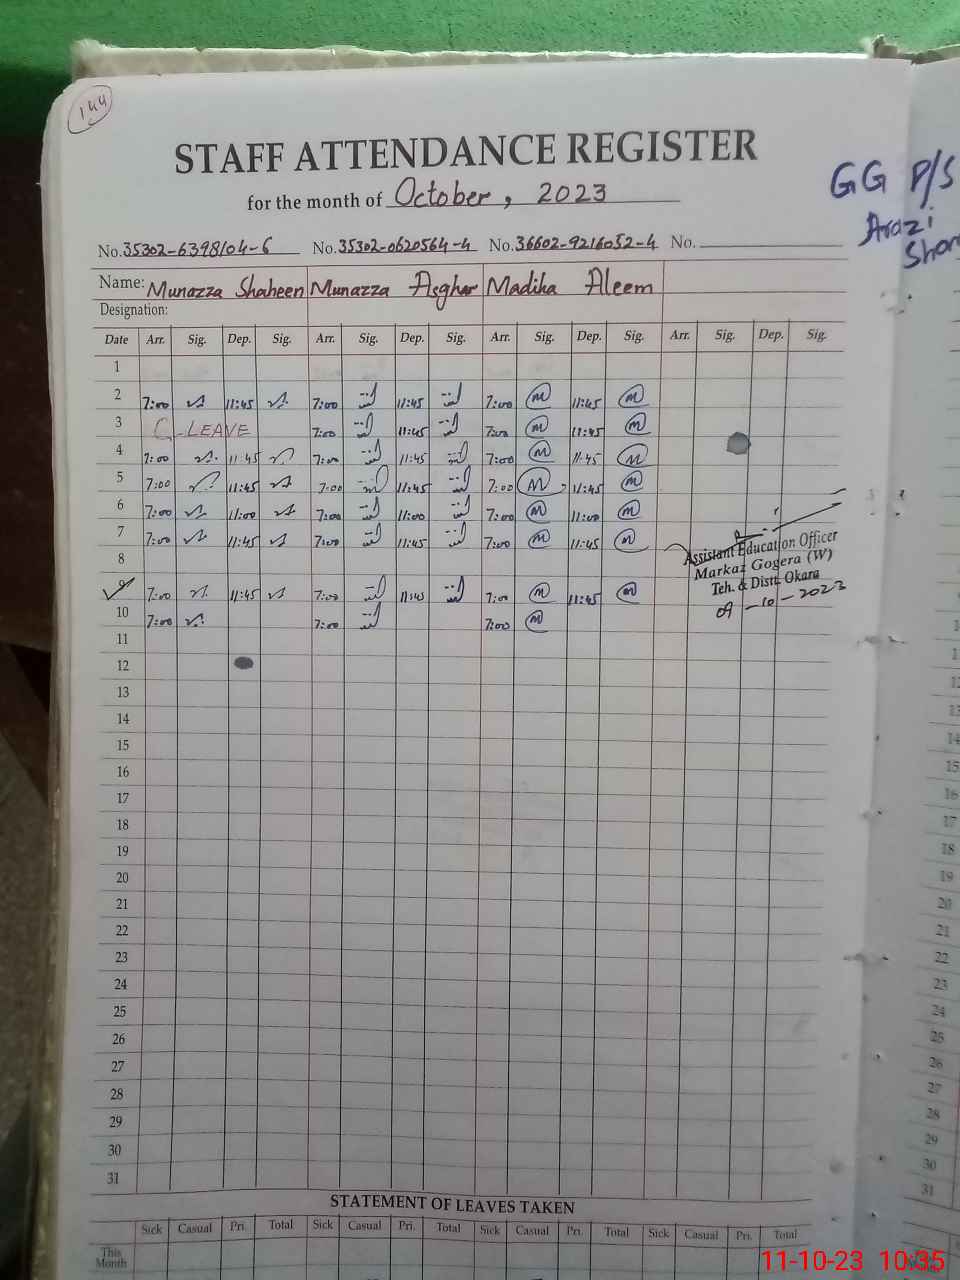 144
STAFF ATTENDANCE REGISTER
for the month of October, 2023
GG P/S
Arazi
No. 35302-6398104-6 No. 35302-0620564-4 No. 36602-9216052-4 No.
Name: Munazza Shaheen Munazza Asghar Madiha Aleem
Designation:
Date Arr. Sig. Dep. Sig. Arr. Sig. Dep. Sig. Arr. Sig. Dep. Sig. Arr. Sig. Dep. Sig.
1
2 7:00 11:45 7:00 11:45 7:00 M 11:45 M
3 C-LEAVE 7:00 11:45 7:00 M 11:45 M
4 7:00 11:45 7:00 11:45 7:00 M 11:45 M
5 7:00 11:45 7:00 11:45 7:00 M 11:45 M
6 7:00 11:00 7:00 11:00 7:00 M 11:00 M
7 7:00 11:45 7:00 11:45 7:00 M 11:45 M
8
Assistant Education Officer
Markaz Gogera (W)
Teh. & Distt. Okara
09-10-2023
9 7:00 11:45 7:00 11:45 7:00 M 11:45 M
10 7:00 7:00 7:00 M
11
12
13
14
15
16
17
18
19
20
21
22
23
24
25
26
27
28
29
30
31
STATEMENT OF LEAVES TAKEN
Sick Casual Pri. Total Sick Casual Pri. Total Sick Casual Pri. Total Sick Casual Pri. Total
This
Month
11-10-23 10:35